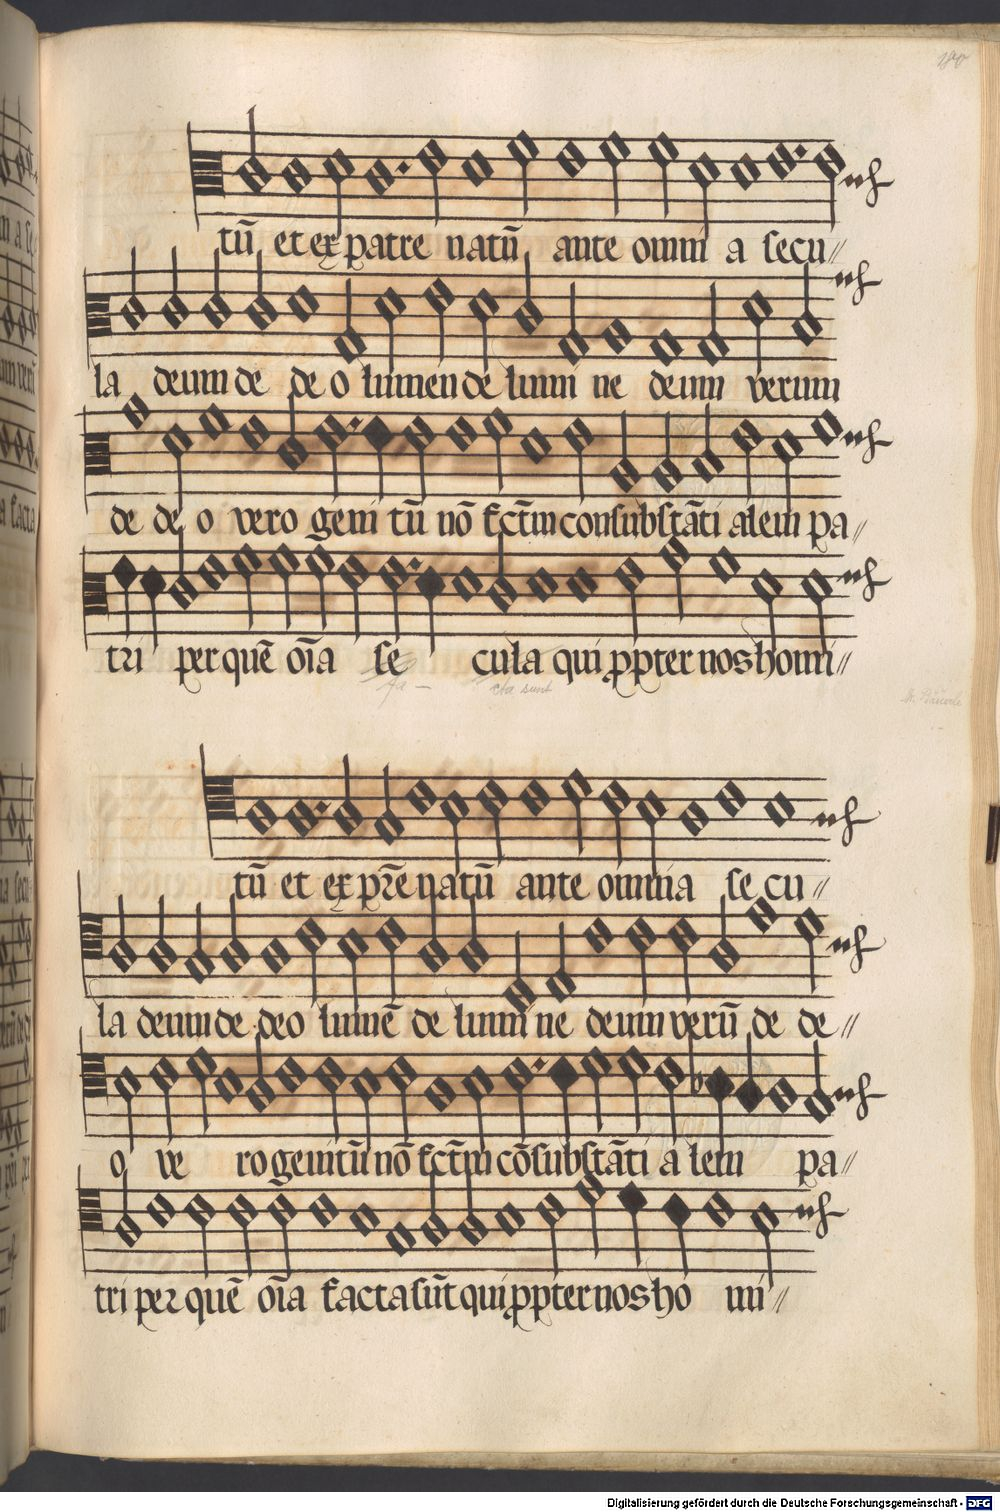 180
tū et ex patre natū ante omni a secu//
la deum de de o lumen de lumi ne deum verum
de de o vero geni tū nō fct̄m consubstāti alem pa//
tri per quē oīa se cula qui ꝓpter nos homi//
fa- cta sunt
tū et ex pr̄e natū ante omnia se cu//
la deum de deo lumē de lumi ne deum verū de de//
o ve ro genitū nō fct̄m cōsubstāti a lem pa//
tri per quē oīa facta sūt qui ꝓpter nos ho mi//
Digitalisierung gefördert durch die Deutsche Forschungsgemeinschaft - DFG